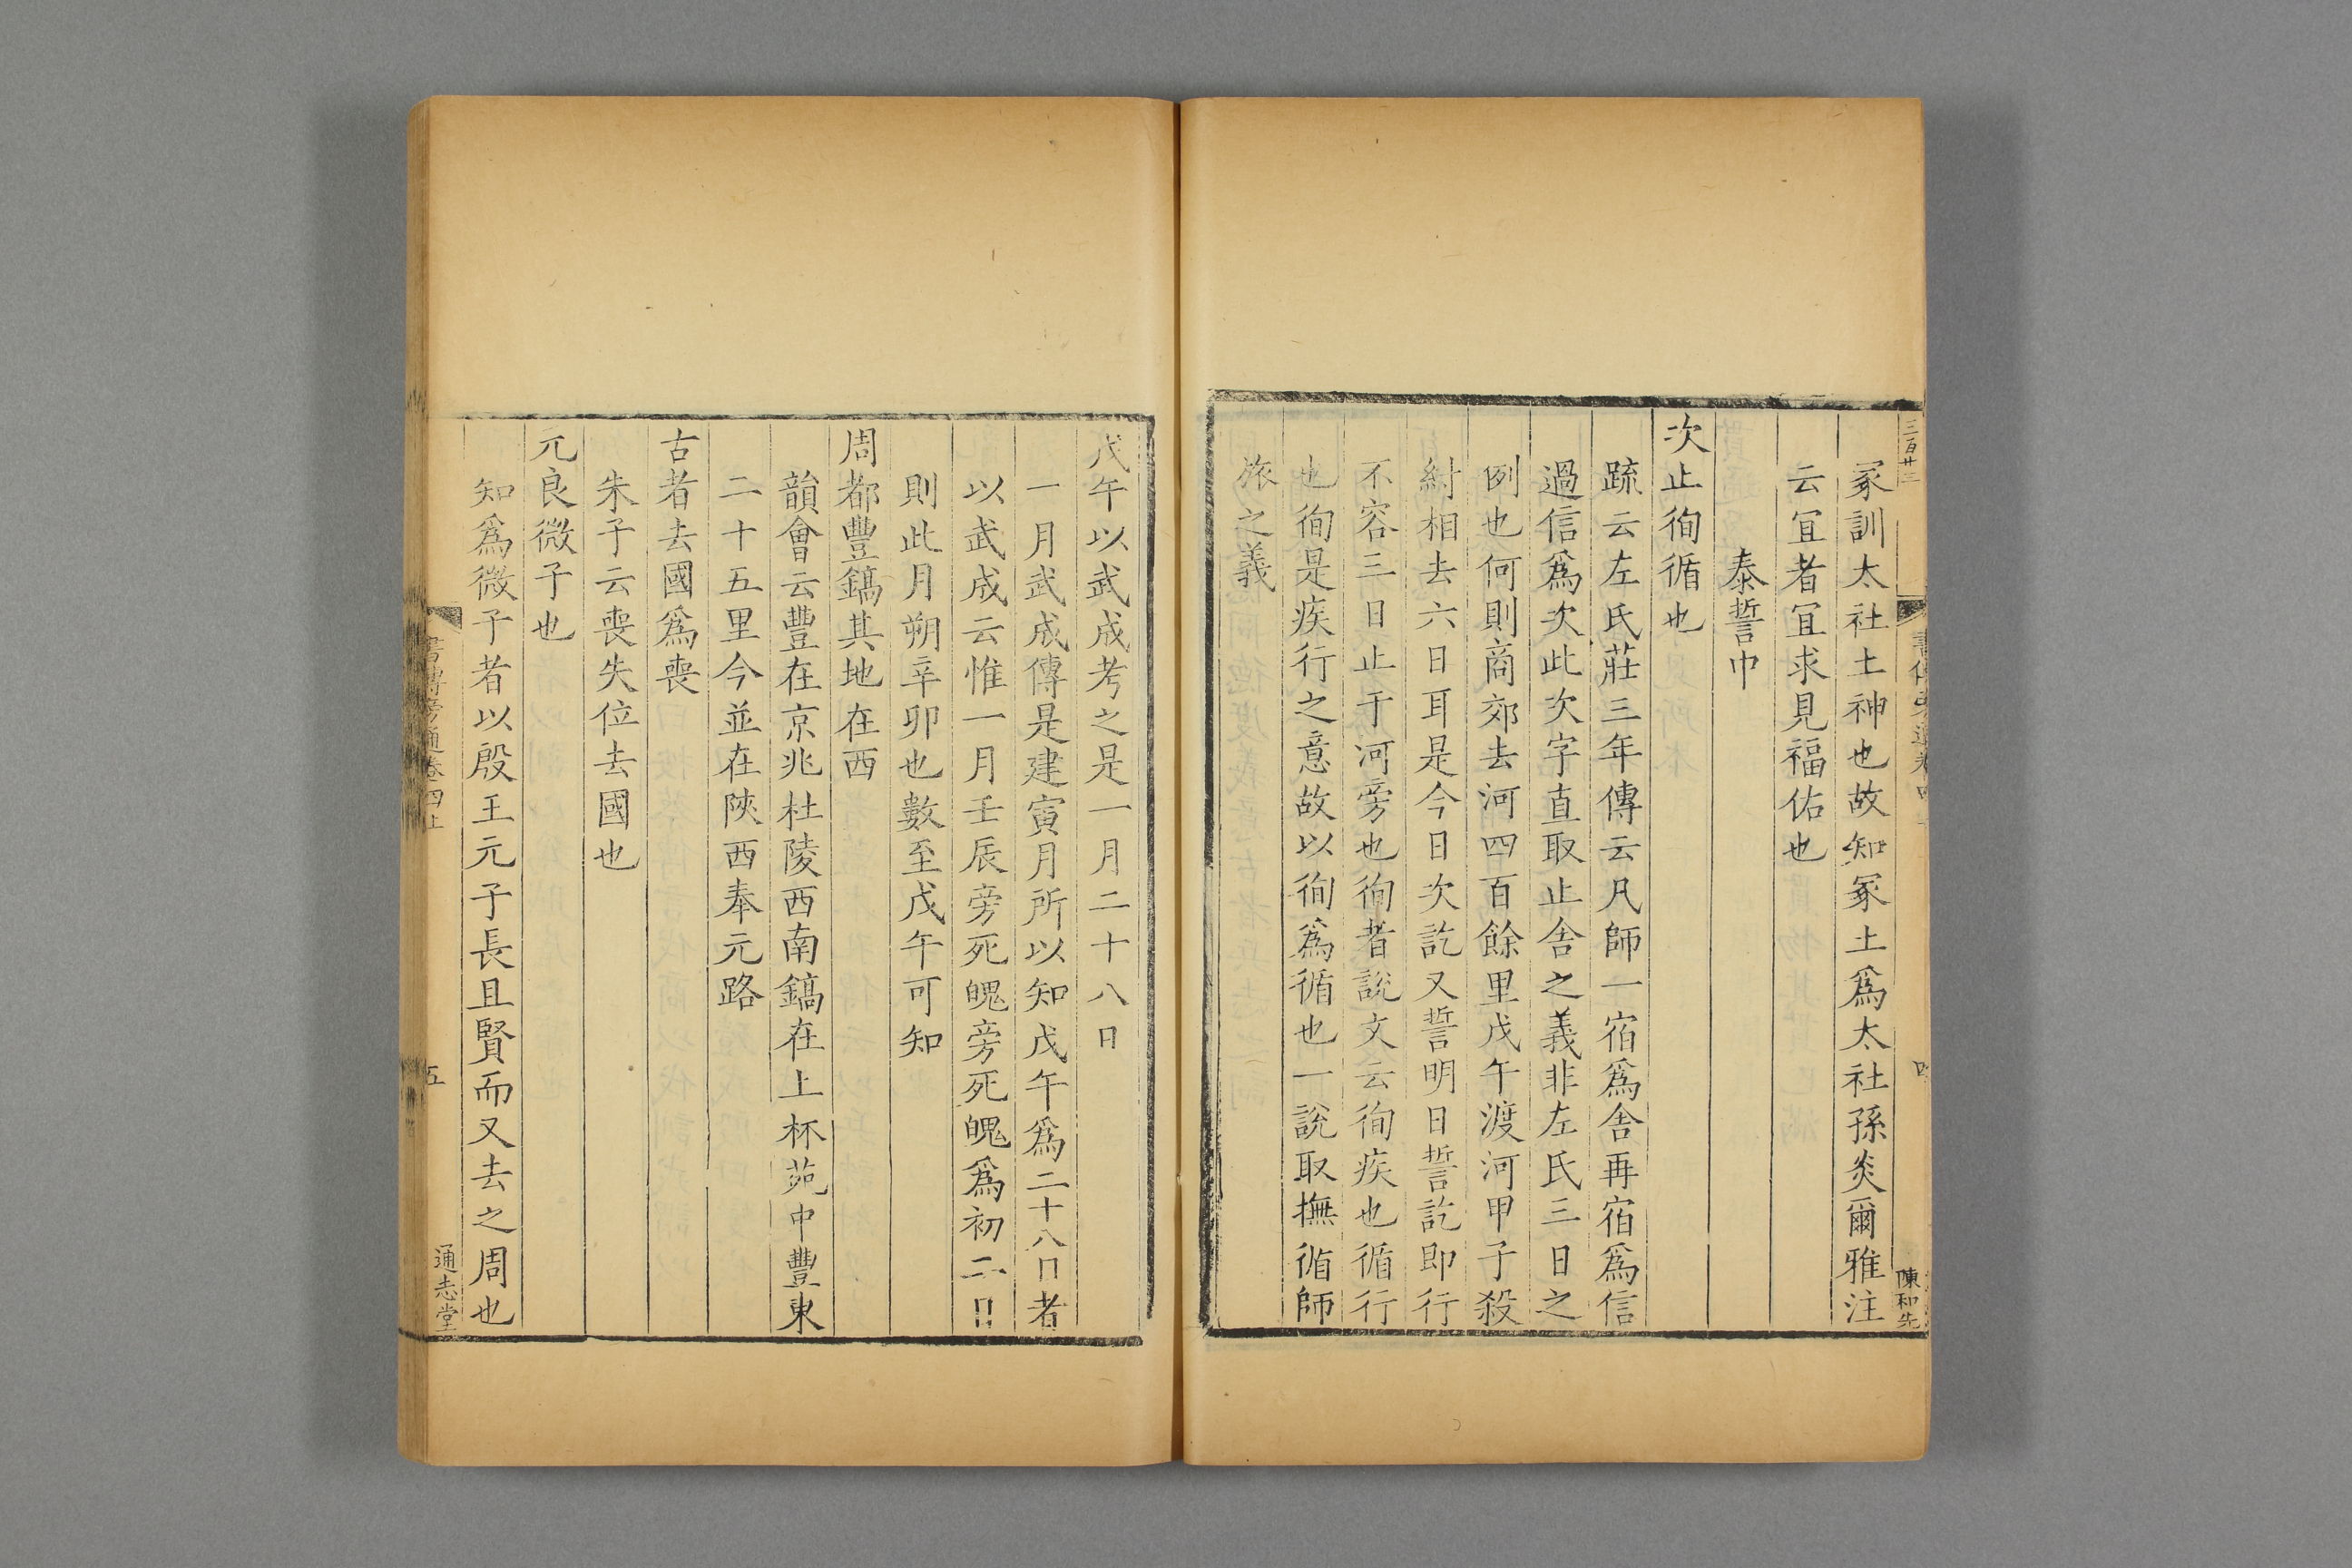 三百廿三
陳和先
冢訓太社土神也故知冢土爲太社孫炎爾雅注
云冝者冝求見福佑也
泰誓中
次止徇循也
疏云左氏莊三年傳云凡師一宿爲舍再宿爲信
過信爲次此次字直取止舍之義非左氏三日之
例也何則商郊去河四百餘里戊午渡河甲子殺
紂相去六日耳是今日次訖又誓明日誓訖即行
不容三日止于河旁也徇者說文云徇疾也循行
也徇是疾行之意故以徇爲循也一說取撫循師
旅之義
戊午以武成考之是一月二十八日
一月武成傳是建寅月所以知戊午爲二十八日者
以武成云惟一月壬辰旁死魄旁死魄爲初二日
則此月朔辛卯也數至戊午可知
周都豐鎬其地在西
韻會云豐在京兆杜陵西南鎬在上林苑中豐東
二十五里今並在陝西奉元路
古者去國爲喪
朱子云喪失位去國也
元良微子也
知爲微子者以殷王元子長且賢而又去之周也
書傳旁通卷四上
五
通志堂